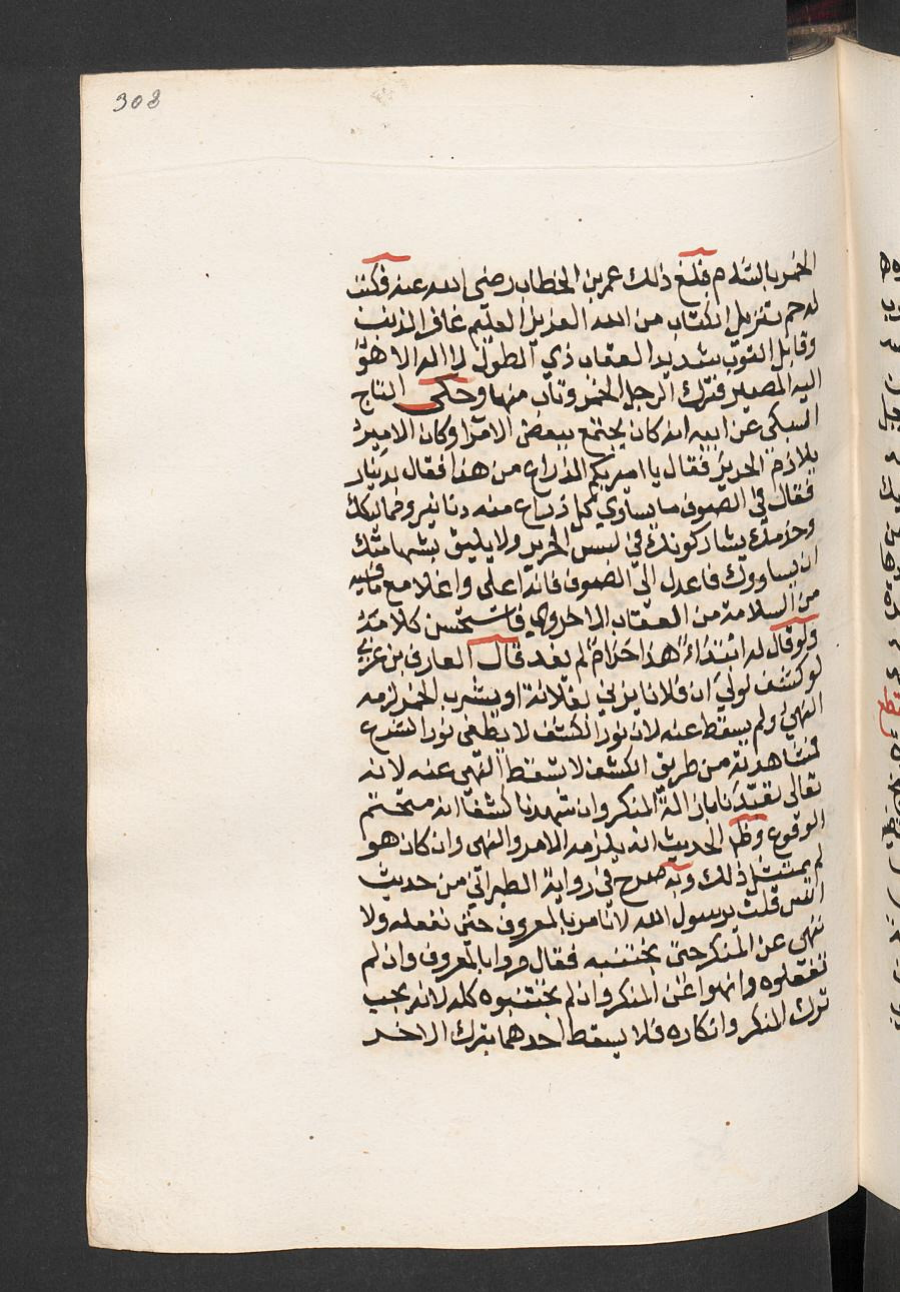 308
الخمر بالشام فبلغ ذلك عمر بن الخطاب رضي الله عنه فكتب
له حم تنزيل الكتاب من الله العزيز العليم غافر الذنب
وقابل التوب شديد العقاب ذي الطول لا اله الا هو
اليه المصير فترك الرجل الخمر وتاب منها وحكى التاج
السبكي عن ابيه انه كان يجتمع ببعض الامرا وكان الامير
يلازم الحرير فقال يا امير بكم الذراع من هذا فقال بدينار
فقال في الصوف ما يساوي كل ذراع منه دنانير ومماليكك
وخدمك يشاركونك في لبس الحرير ولا يليق بشهامتك
ان يساووك فاعدل الى الصوف فانه اعلى واغلا مع ما فيه
من السلامة من العقاب الاخروي فاستحسن كلامه
ولو قال له ابتداء هذا حرام لم يفد قال العارف بن عربي
لو كشف لولي ان فلانا يزني بفلانة او يشرب الخمر لزمه
النهي ولم يسقط عنه لان نور الكشف لا يطفي نور الشرع
فمشاهدته من طريق الكشف لا تسقط النهي عنه لانه
تعالى تعبدنا بازالة المنكر وان شهدنا كشفا انه متحتم
الوقوع وظا الحديث انه يلزمه الامر والنهي وان كان هو
لم يمتثل ذلك وبه صرح في رواية الطبراني من حديث
انس قلت يرسول الله لا نامر بالمعروف حتى نفعله ولا
ننهى عن المنكر حتى نجتنبه فقال مروا بالمعروف وان لم
تفعلوه وانهوا عن المنكر وان لم تجتنبوه كله لانه يجب
ترك المنكر وانكاره فلا يسقط احدهما بترك الاخر